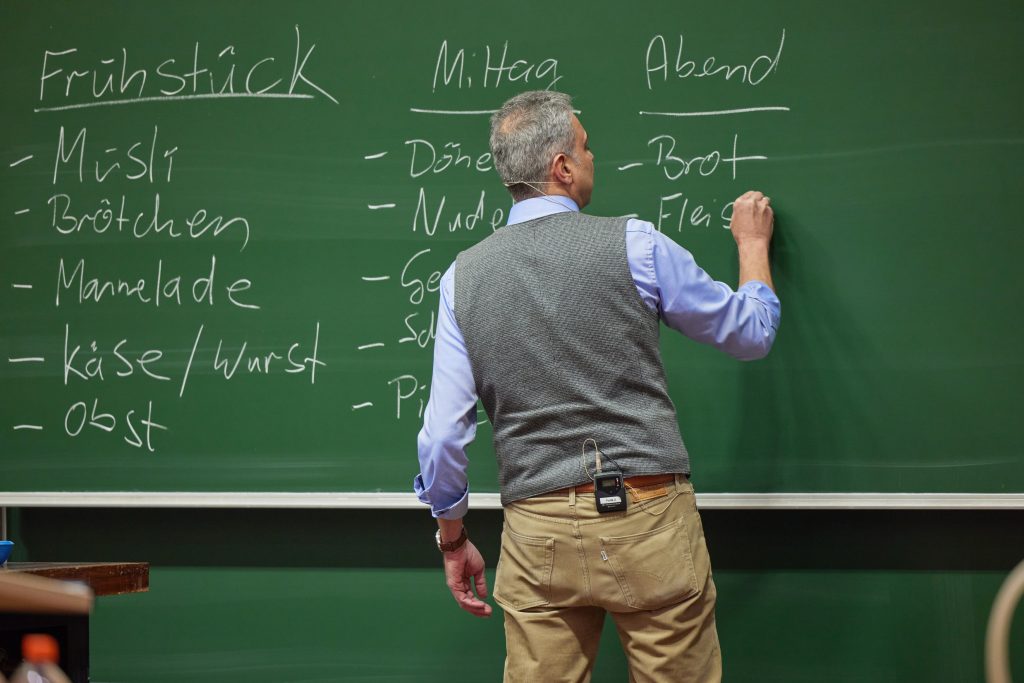 Frühstück
- Müsli
- Brötchen
- Marmelade
- Käse/Wurst
- Obst
Mittag
- Döne
- Nude
- Ge
- Sc
- Pi
Abend
- Brot
- Fleis